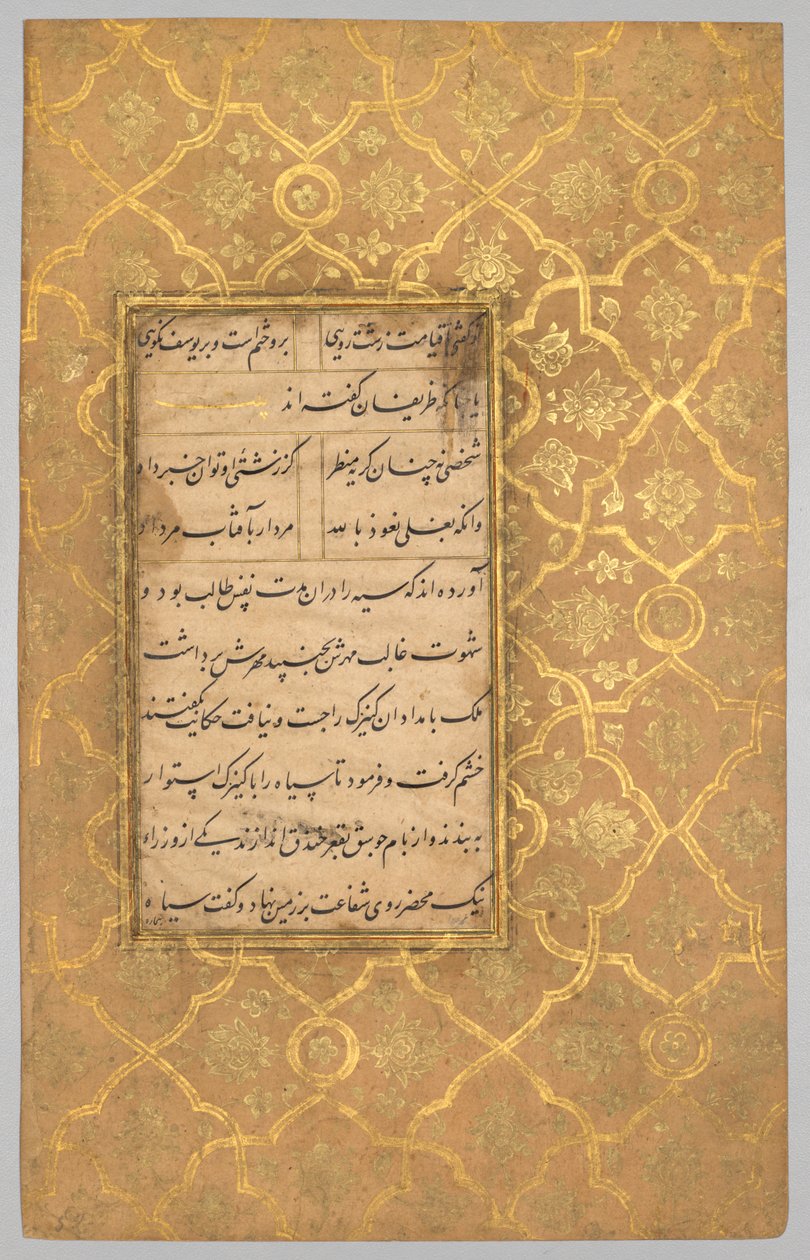 تو گفتی تا قیامت زشت رویی بروختم است و بر یوسف نکویی
چنانکه ظریفان گفته اند بیت
شخصی نه چنان کریه منظر کز زشتی او توان خبر داد
وانکه بغلی نعوذ بالله مردار بآفتاب مرداد
آورده اند که سیه را دران مدت نفس طالب بود و
شهوت غالب مهرش بجنبید مهرش برداشت
ملک بامدادان کنیزک را جست و نیافت حکایت بگفتند
خشم گرفت و فرمود تا سیاه را با کنیزک استوار
به بندند و از بام جوسق بقعر خندق اندازند یکی از وزراء
نیک محضر روی شفاعت بر زمین نهاد و گفت سیاه